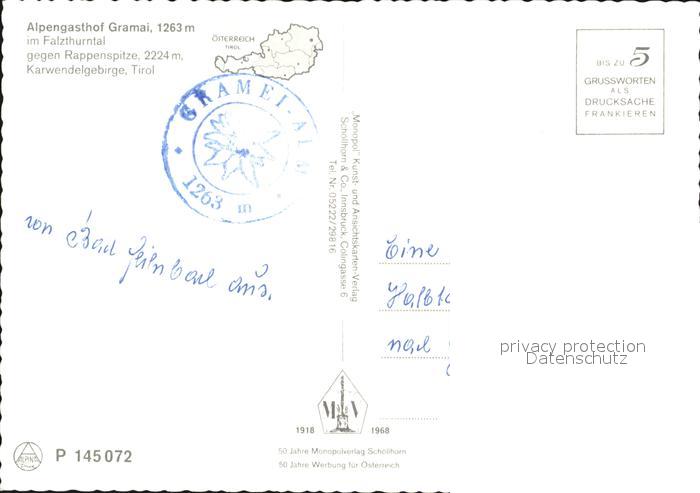 Alpengasthof Gramai, 1263 m
im Falzthurntal
gegen Rappenspitze, 2224 m,
Karwendelgebirge, Tirol
ÖSTERREICH
TIROL
BIS ZU 5
GRUSSWORTEN
ALS
DRUCKSACHE
FRANKIEREN
GRAMEI-ALM
1263 m
„Monopol" Kunst- und Ansichtskarten-Verlag
Schöllhorn & Co., Innsbruck, Colingasse 6
Tel. Nr. 05222/29816
von Bad
aus.
Eine
nach
privacy protection
Datenschutz
M V
1918 1968
50 Jahre Monopolverlag Schöllhorn
50 Jahre Werbung für Österreich
ALPINA
P 145072